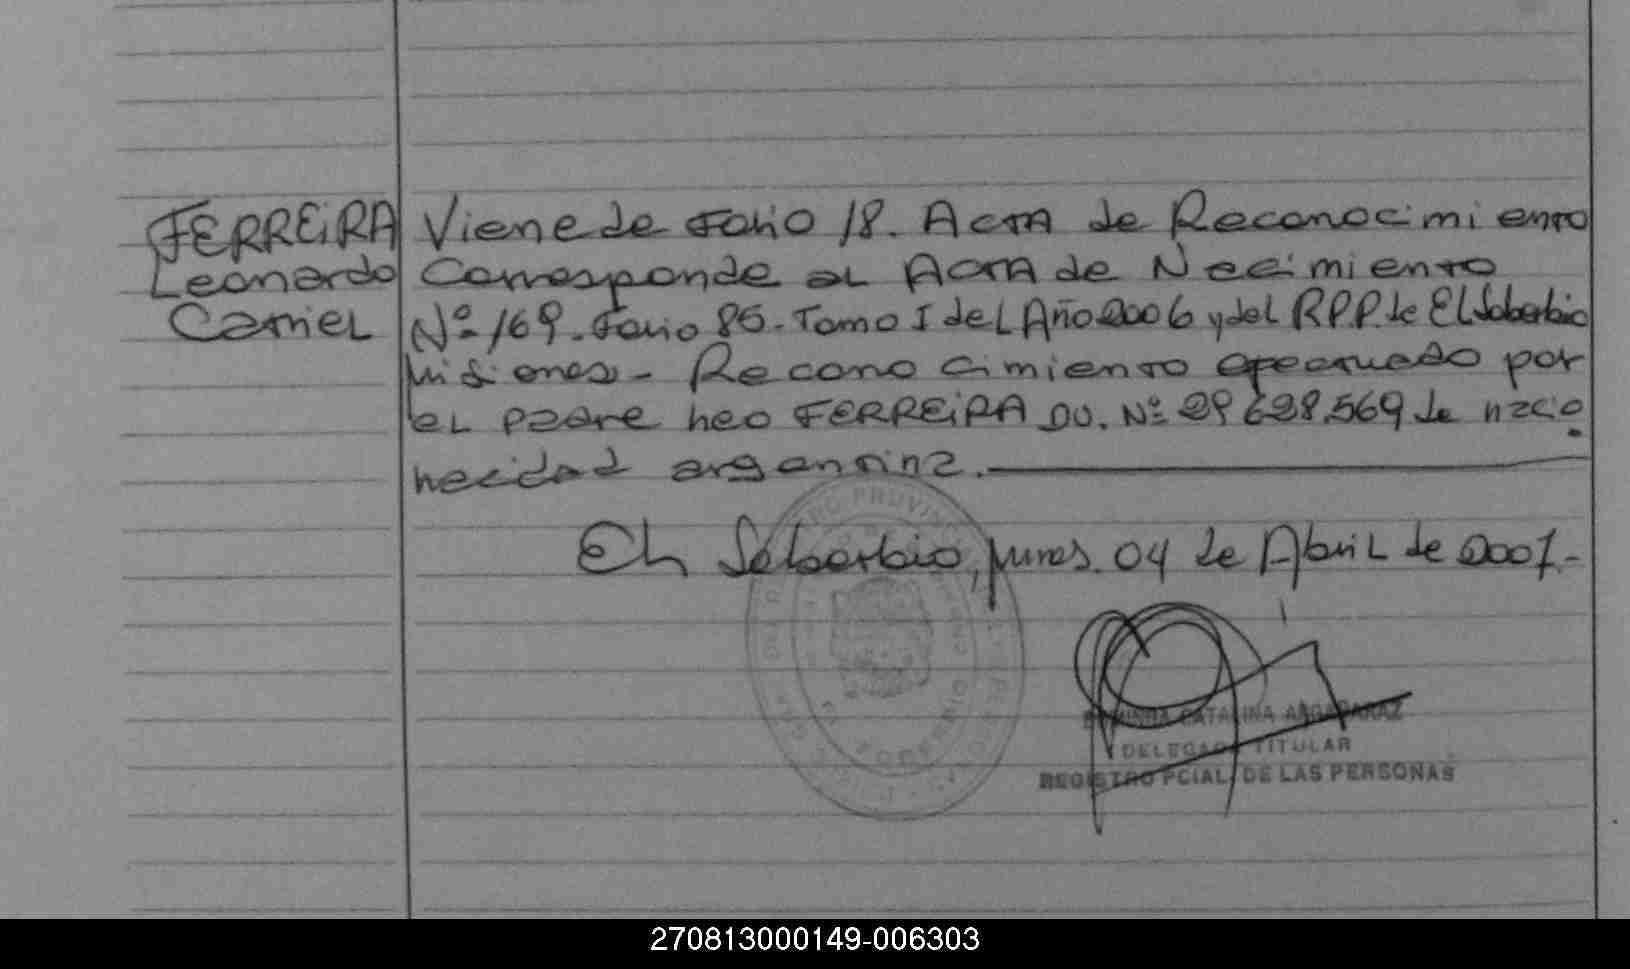 FERREIRA
Leonardo
Viene de Folio 18. Acta de Reconocimiento
Corresponde al Acta de Nacimiento
Nº 169. Folio 85. Tomo I del Año 2006 y del R.P.P. de El Soberbio
Misiones - Reconocimiento efectuado por
el padre Leo FERREIRA DU. Nº 29628.569 de nacio
nalidad argentina.
El Soberbio, Mnes. 04 de Abril de 2007.-
CATALINA
DELEGADA TITULAR
REGISTRO PCIAL. DE LAS PERSONAS
270813000149-006303